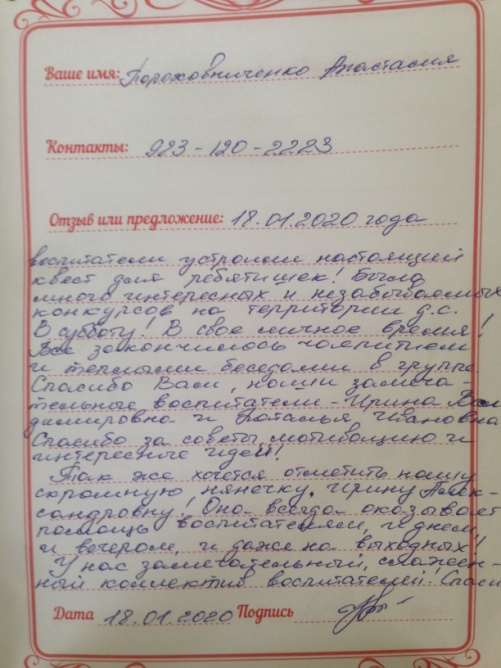 Ваше имя: Пороховниченко Анастасия
Контакты: 923-120-2223
Отзыв или предложение: 18.01.2020 года
воспитатели устроили настоящий
квест для ребятишек! Было
много интересных и незабываемых
конкурсов на территории д.с.
В субботу! В свое личное время!
Все закончилось чаепитием
и теплыми беседами в группе
Спасибо Вам, наши замеча-
тельные воспитатели - Ирина Вла
димировна и Наталья Ивановна
Спасибо за советы, мотивацию и
интересные идеи!
Так же хочется отметить нашу
скромную нянечку, Ирину Алек-
сандровну! Она всегда оказывает
помощь воспитателям, и днем,
и вечером, и даже на выходных!
У нас замечательный, слажен-
ный коллектив воспитателей. Спаси
Дата 18.01.2020 Подпись